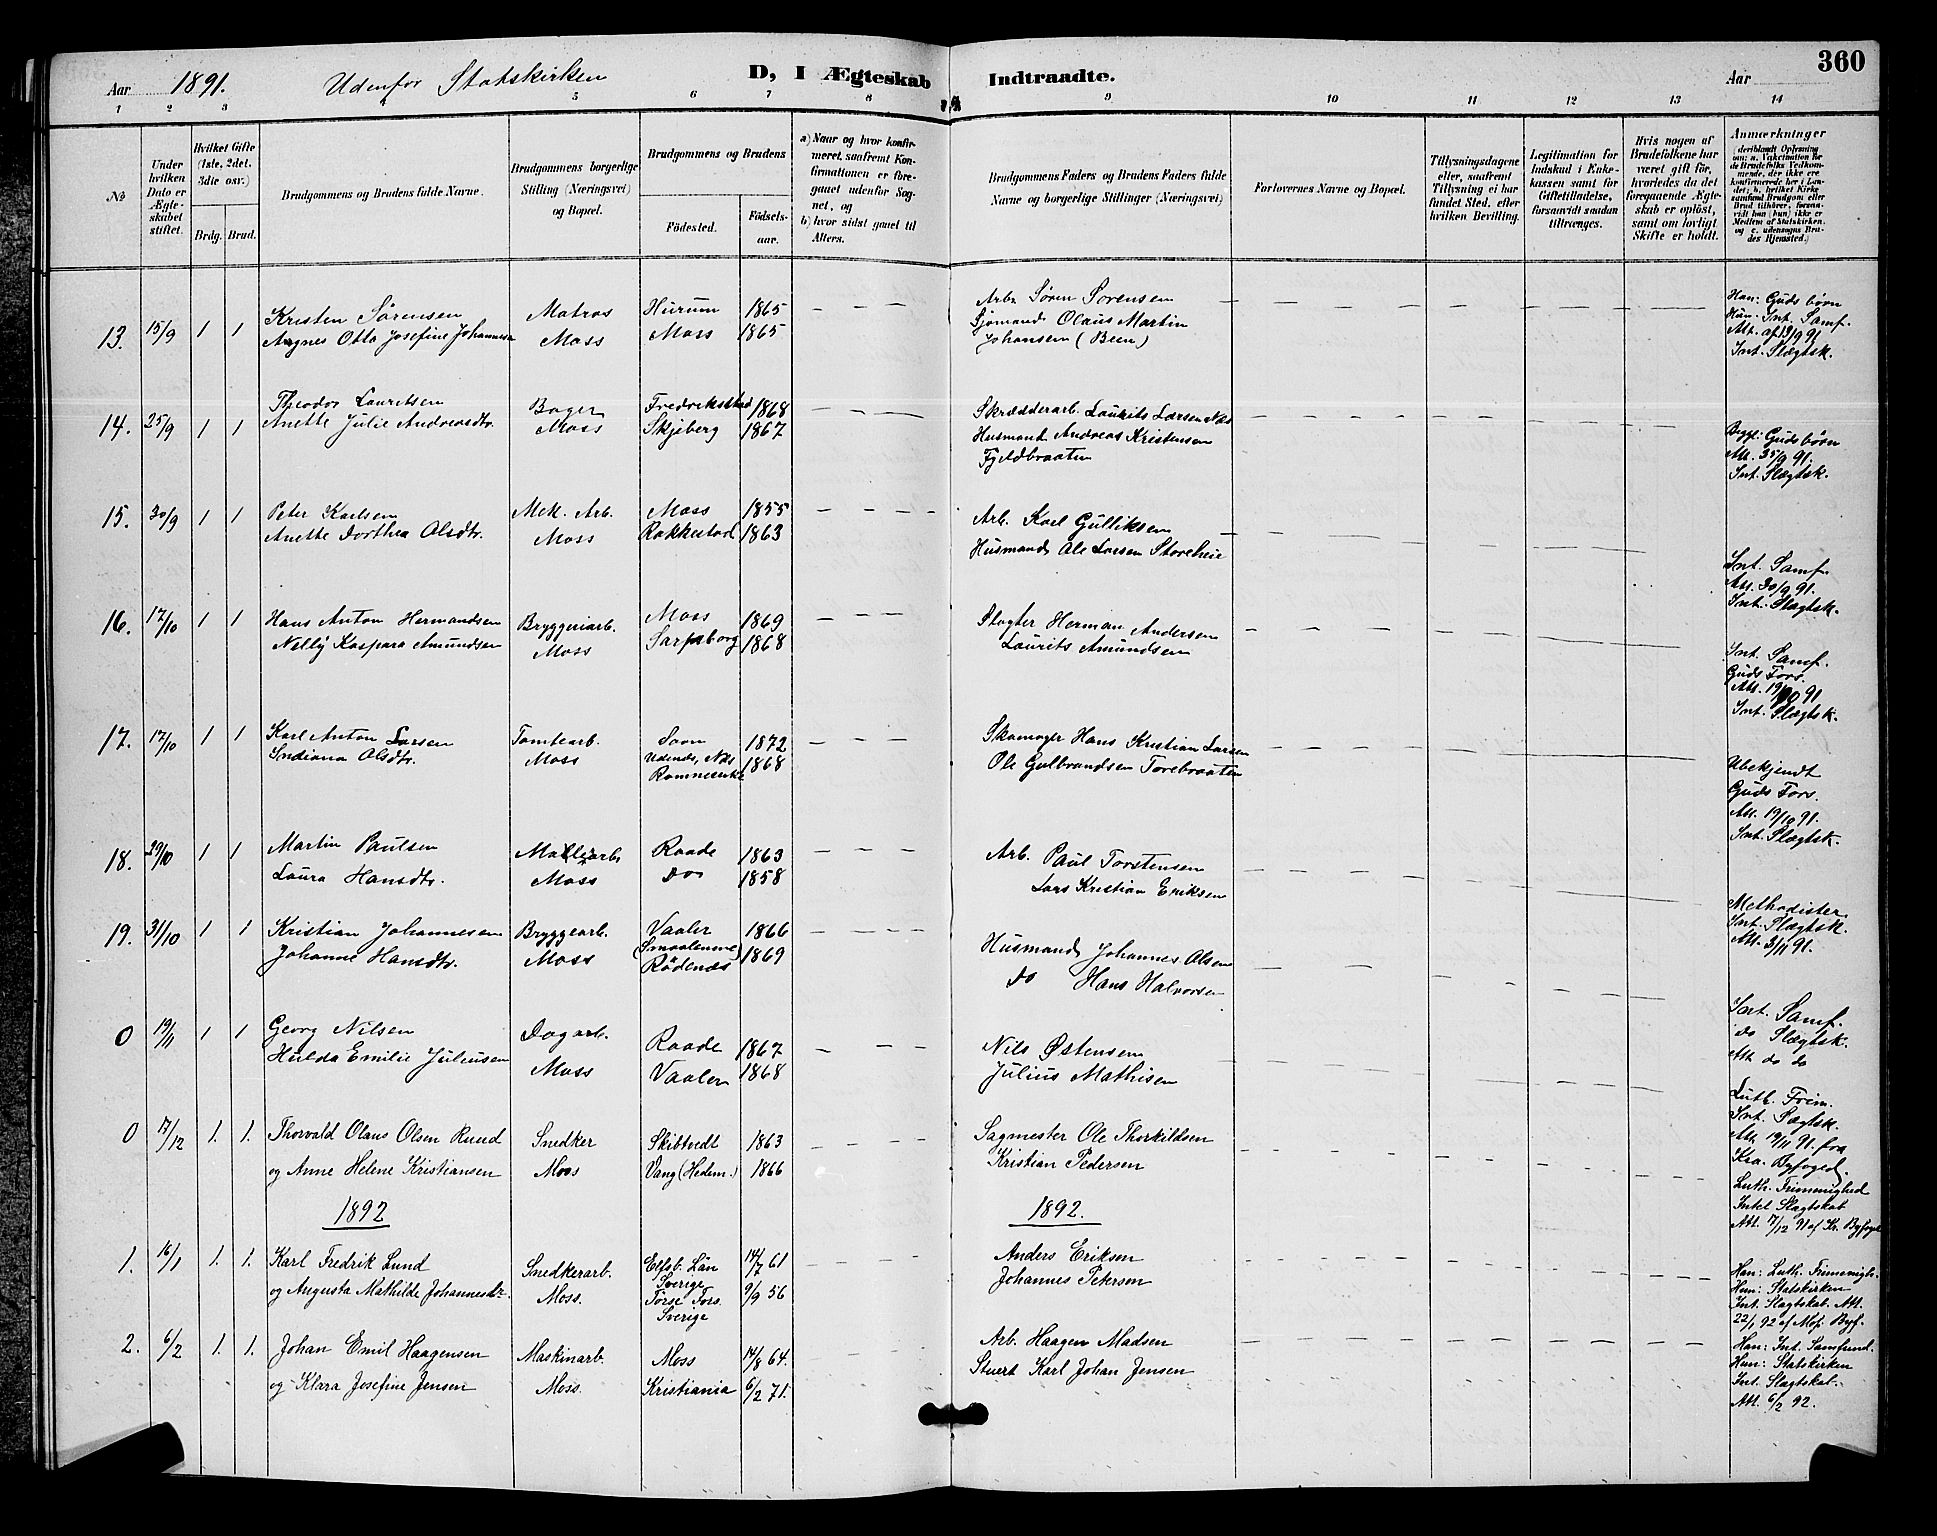 Aar 1891. Udenfor Statskirken D, I Ægteskab Indtraadte. Aar 360
1 2 3 4 5 6 7 8 9 10 11 12 13 14
№
Under hvilken Dato er Ægteskabet stiftet.
Hvilket Gifte (1ste, 2det, 3die osv.)
Brdg. Brud.
Brudgommens og Brudens fulde Navne.
Brudgommens borgerlige Stilling (Næringsvei) og Bopæl.
Brudgommens og Brudens
Fødested. Fødselsaar.
a) Naar og hvor konfirmeret, saafremt Konfirmationen er foregaaet udenfor Sognet, og
b) hvor sidst gaaet til Alters.
Brudgommens Faders og Brudens Faders fulde Navne og borgerlige Stillinger (Næringsvei)
Forlovernes Navne og Bopæl.
Tillysningsdagene eller, saafremt Tillysning ei har fundet Sted, efter hvilken Bevilling.
Legitimation for Indskud i Enkekassen samt for Giftetilladelse, forsaavidt saadan tiltrænges.
Hvis nogen af Brudefolkene har været gift før, hvorledes da det foregaaende Ægteskab er opløst, samt om lovligt Skifte er holdt.
Anmærkninger
(deriblandt Oplysning om: a. Vakcination for de Brudefolks Vedkommende, der ikke ere konfirmerede her i Landet; b. hvilket Kirkesamfund Brudgom eller Brud tilhører, forsaavidt han (hun) ikke er Medlem af Statskirken, og c. udensogns Brudes Hjemsted.)
13. 15/9 1 1 Kristen Sørensen Matros Hurum 1865 Arb. Søren Sorensen Han: Guds børn
Agnes Otto Josefine Johannesen Moss Moss 1865 Sjømand Olaus Martin Hun: Int. Samf.
Johansen (Been) Att. af 13/9 91
Int. Slægtsk.
14. 25/9 1 1 Theodor Lauritsen Bager Fredrikstad 1868 Skrædderarb. Laurits Larsen Næs
Anette Julie Andreasdtr. Moss Skjeberg 1867 Husmand Andreas Kristensen Begge: Guds børn
Fjeldbraaten Att. 25/9 91.
Int. Slægtsk.
15. 30/9 1 1 Peter Karlsen Mek. Arb. Moss 1855 Arb. Karl Gulliksen
Anette Dorthea Olsdtr. Moss Rakkestad 1863 Husmand Ole Larsen Storeheie
Int. Samf.
Att. 30/9 91.
Int. Slægtsk.
16. 17/10 1 1 Hans Anton Hermandsen Bryggeriarb. Moss 1869 Slagter Herman Andersen
Nelly Kaspara Amundsen Moss Sarpsborg 1868 Laurits Amundsen
Int. Samf.
Guds Fors.
Att. 19/10 91
Int. Slægtsk.
17. 17/10 1 1 Karl Anton Larsen Tomtearb. Soon 1872 Skomager Hans Kristian Larsen
Indiana Olsdtr. Moss Udenæs, Næs 1868 Ole Gulbrandsen Torebraaten
Romerike
Ubekjendt
Guds Fors.
Att. 19/10 91.
Int. Slægtsk.
18. 29/10 1 1 Martin Paulsen Møllerarb. Raade 1863 Arb. Paul Torstensen
Laura Hansdtr. Moss Do 1858 Lars Kristian Eriksen
Methodister
Int. Slægtsk.
Att. 3/11 91.
19. 31/10 1 1 Kristian Johannesen Bryggearb. Vaaler 1866 Husmand Johannes Olsen
Johanne Hansdtr. Moss (Smaalenene) Rödenæs 1869 do Hans Halvorsen
Int. Samf.
do Slægtsk.
Att do do
0 19/11 1 1 Georg Nilsen Dagarb. Raade 1867 Nils Østensen
Hulda Emilie Juliusen Moss Vaaler 1868 Julius Mathisen
Luth. Frim.
Int. Slægtsk.
Att. 19/11 91. fra
Kra. Byfoged.
0 17/12 1. 1. Thorvald Olaus Olsen Ruud Snedker Skibtvedt 1863 Sagmester Ole Thorkildsen
og Anne Helene Kristiansen Moss Vang (Hedem.) 1866 Kristian Pedersen
Luth. Frimenighed
Intet Slagtskab
Att. 7/12 91 af Kr. Byfoged
1892 1892.
1. 16/1 1. 1. Karl Fredrik Lund Snedkerarb. Elfsb. Län Sverige 14/7 61 Anders Erikson
og Augusta Mathilde Johannesdtr. Moss. Torse Fors. Sverige 9/9 56 Johannes Peterson
Han: Luth. Frimenigh.
Hun: Statskirken
Int. Slagtskab. Att.
22/1 92 af Mos. Byf.
2. 6/2 1. 1. Johan Emil Haagensen Maskinarb. Moss 14/8 64. Arb. Haagen Madsen
og Klara Josefine Jensen Moss. Kristiania 6/2 71. Stuert Karl Johan Jensen
Han: Int. Samfund.
Hun: Statskirken
Int. Slagtskab.
Att. 6/2 92.